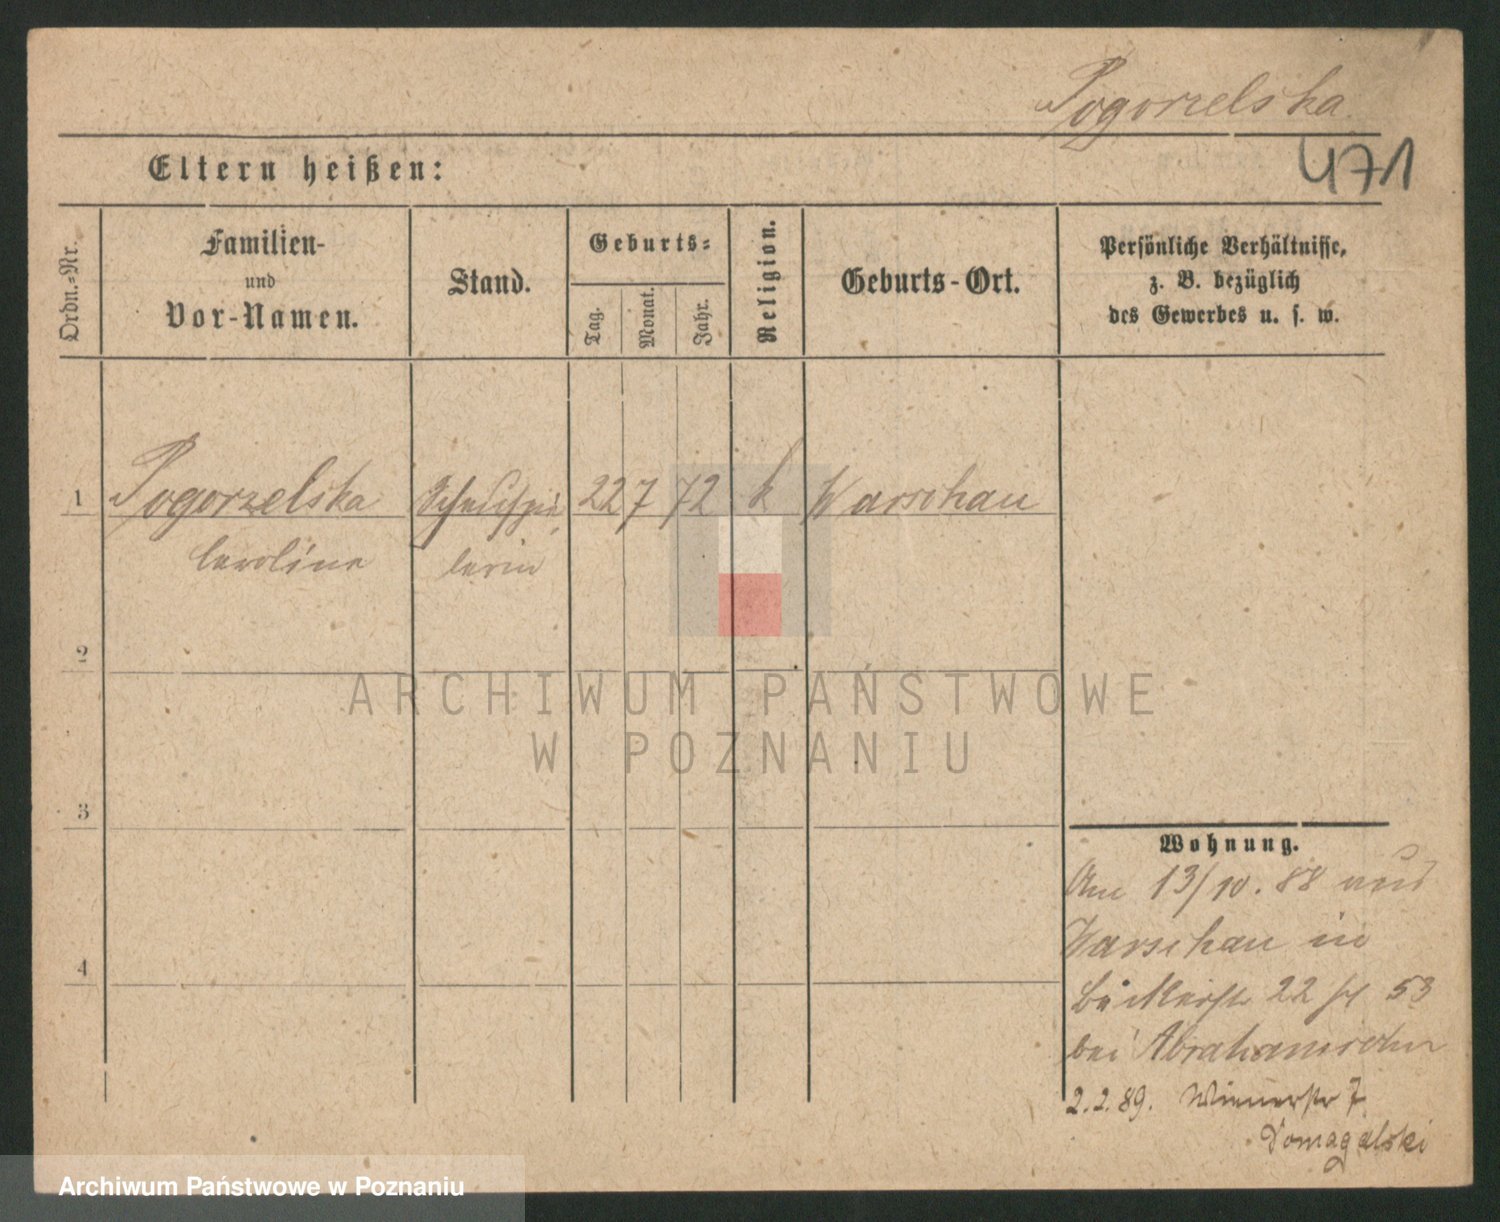 Pogorzelska
471
Eltern heißen:
Ordn.-Nr.
Familien-
und
Vor-Namen.
Stand.
Geburts-
Tag.
Monat.
Jahr.
Religion.
Geburts-Ort.
Persönliche Verhältnisse,
z. B. bezüglich
des Gewerbes u. s. w.
1 Pogorzelska Schauspie 22 7 72 k Warschau
Caroline lerin
2
3
4
ARCHIWUM PAŃSTWOWE
W POZNANIU
Wohnung.
Am 13/10. 88 aus
Warschau in
Bäckerstr 22 53
bei Abrahamsohn
2.2.89. Wienerstr 7
Domagalski
Archiwum Państwowe w Poznaniu